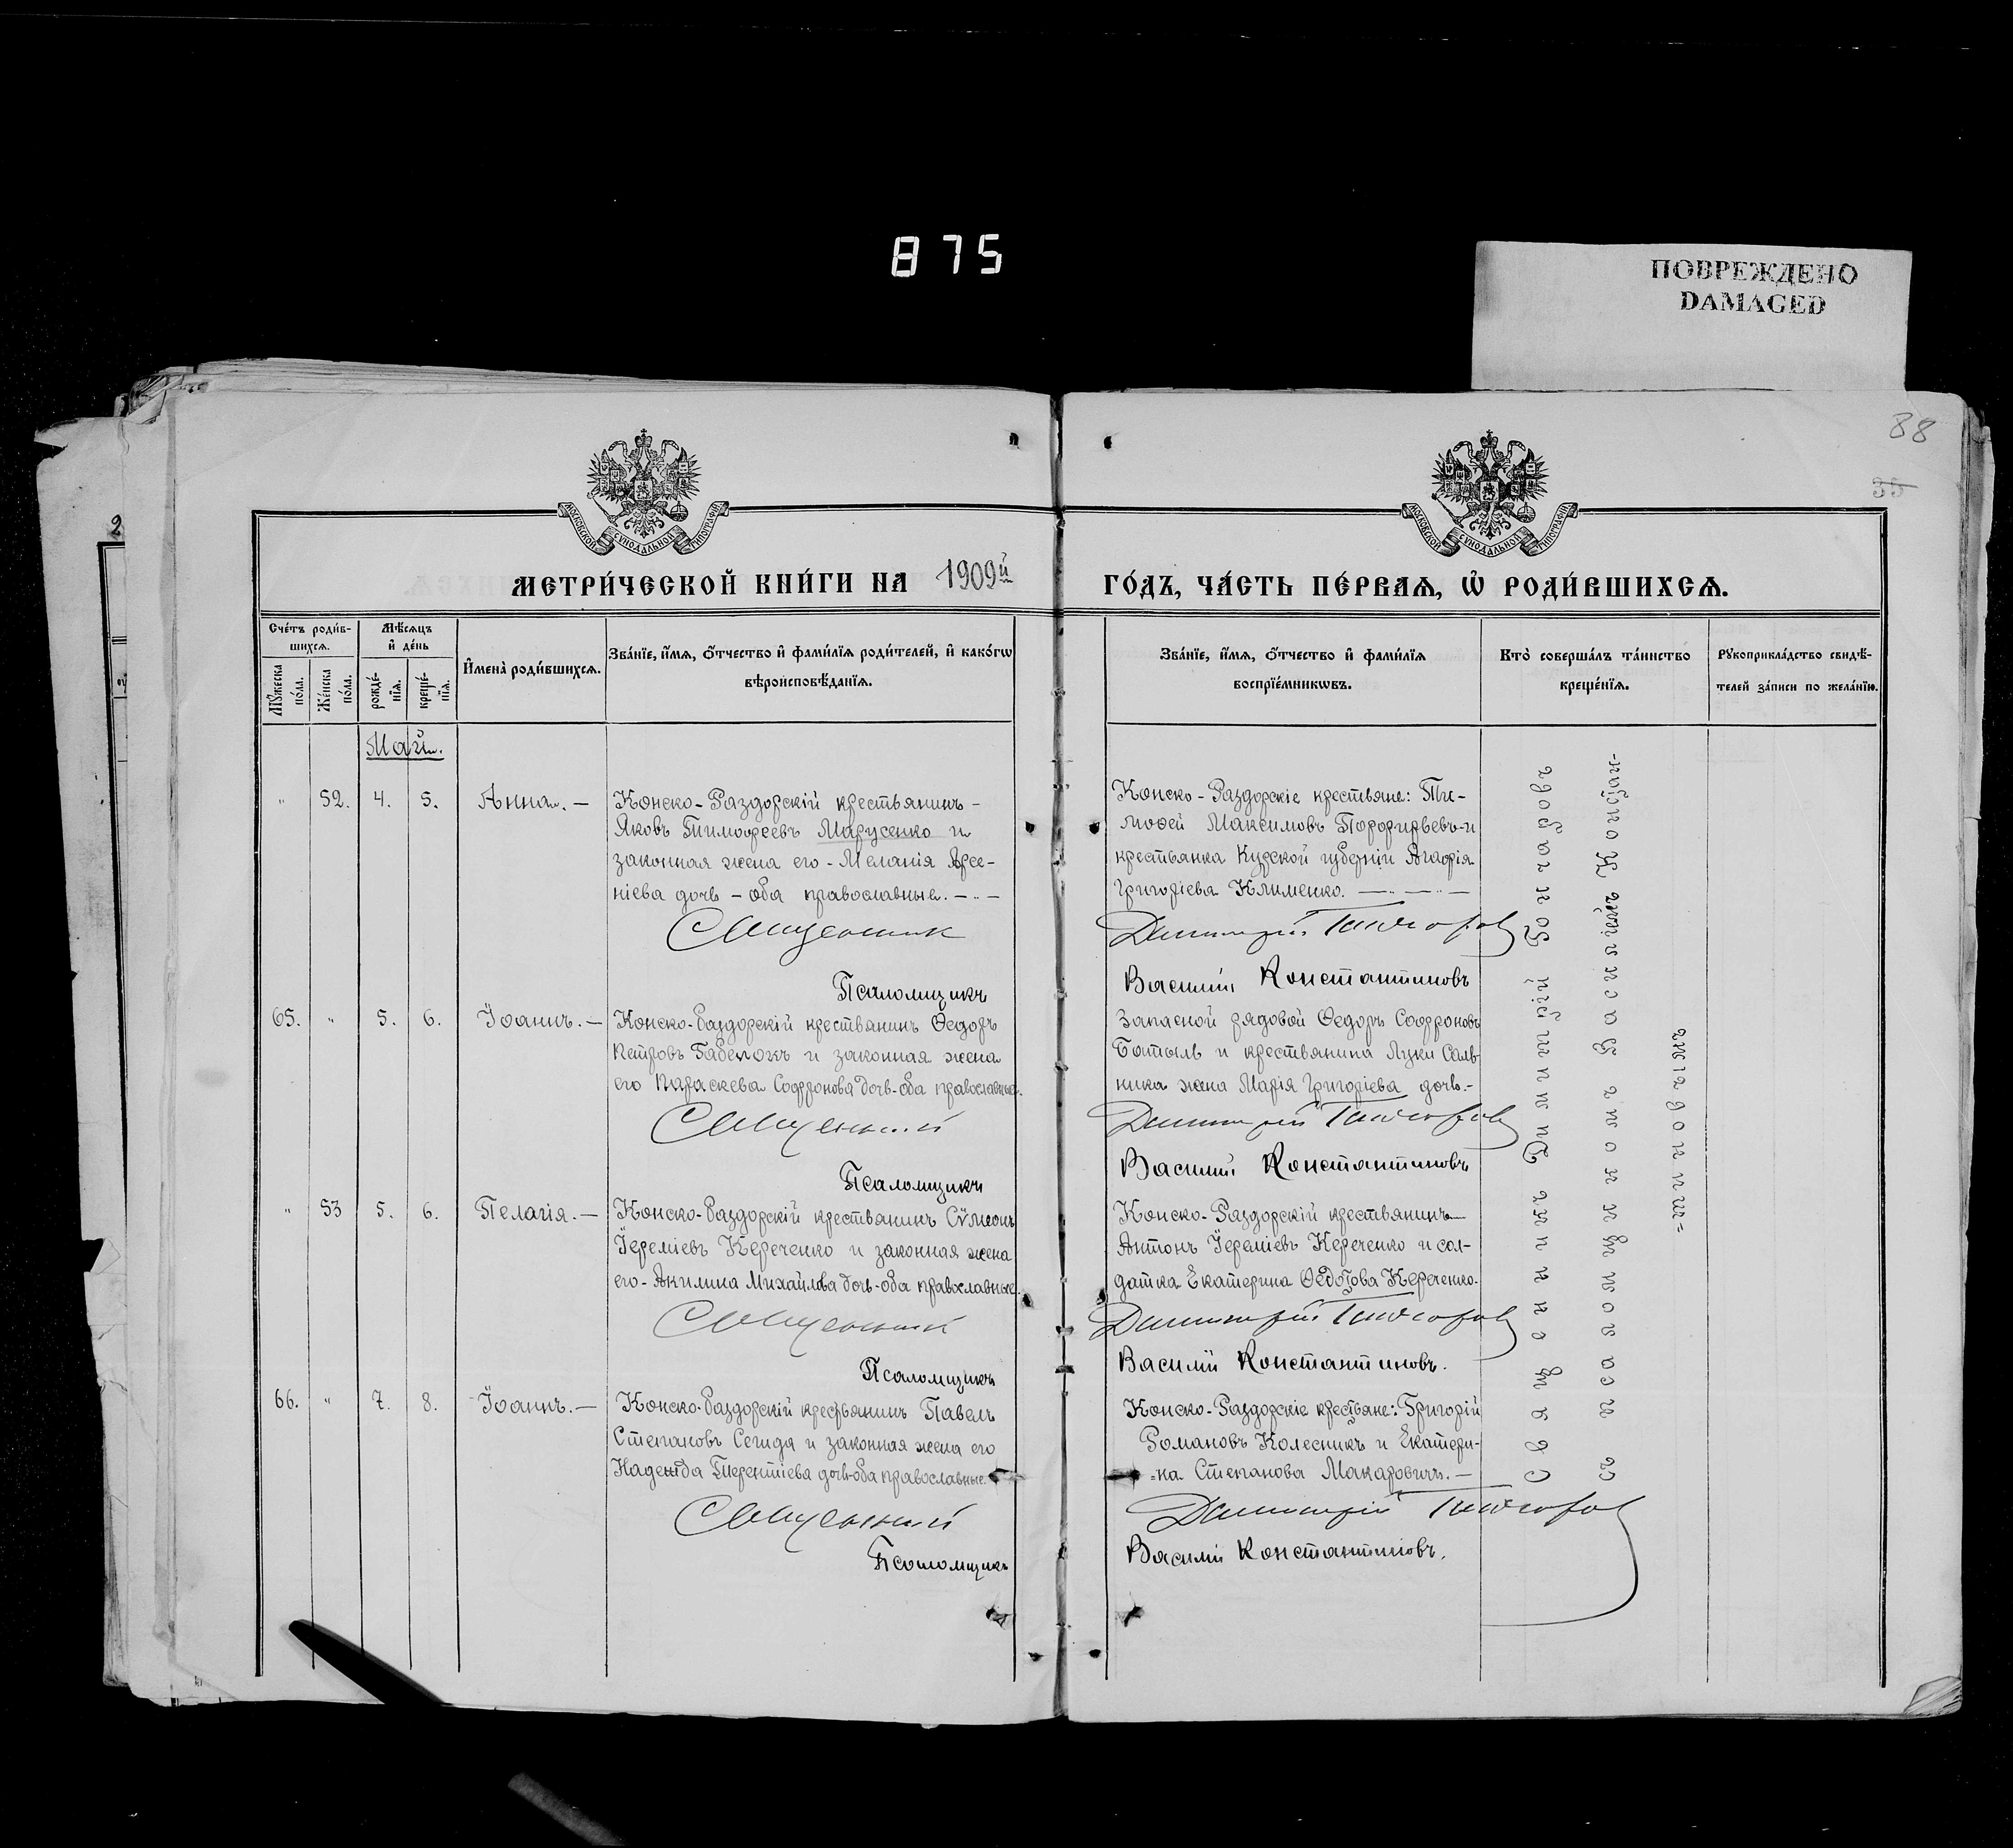 875
ПОВРЕЖДЕНО
DAMAGED
88
35
2
МОСКОВСКОЙ СѴНОДАЛЬНОЙ ТИПОГРАФІИ
МОСКОВСКОЙ СѴНОДАЛЬНОЙ ТИПОГРАФІИ
МЕТРИ́ЧЕСКОЙ КНИ́ГИ НА 1909й ГО́ДЪ, ЧА́СТЬ ПЕ́РВАѦ, Ѡ РОДИ́ВШИХСѦ.
Сче́тъ роди́в-
шихсѧ.
Мꙋжеска по́ла.
Же́нска по́ла.
Мѣ́сѧцъ и де́нь
рожде́-нїѧ.
креще́-нїѧ.
И҆мена̀ роди́вшихсѧ.
Зва́нїе, и҆́мѧ, ѻ҆́тчество и҆ фами́лїѧ роди́телей, и҆ како́гѡ
вѣроисповѣ́данїѧ.
Зва́нїе, и҆́мѧ, ѻ҆́тчество и҆ фами́лїѧ
воспрїе́мникѡвъ.
Кто̀ соверша́лъ та́инство
креще́нїѧ.
Рꙋкоприкла́дство свидѣ́-
телей за́писи по жела́нїю.
Май.
" 52. 4. 5. Анна. —
Конско-Раздорскій крестьянинъ -
Яковъ Тимофеевъ Марусенко и
законная жена его - Меланія Арсе-
ніева дочь - оба православные. -..-
Священник
Псаломщикъ
Конско-Раздорскіе крестьяне: Ти-
мофей Максимовъ Порфирьевъ - и
крестьянка Курской губерніи Агафія
Григоріева Клименко. —..—..—
Димитрій
Василій Константиновъ
65. " 5. 6. Іоаннъ. —
Конско-Раздорскій крестьянинъ Ѳедоръ
Петровъ и законная жена
его Параскева Софронова дочь - оба православные.
Священник
Псаломщикъ
Запасной рядовой Ѳедоръ Софроновъ
Батыль и крестьянина Луки Саль-
ника жена Марія Григоріева дочь. -
Димитрій
Василій Константиновъ
" 53 5. 6. Пелагія. —
Конско-Раздорскій крестьянинъ Сѵмеонъ
Іереміевъ Кереченко и законная жена
его - Акилина Михайлова дочь - оба православные.
Священник
Псаломщикъ
Конско-Раздорскій крестьянинъ —
Антонъ Іереміевъ Кереченко и сол-
датка Екатерина Ѳедотова Кереченко.
Димитрій
Василій Константиновъ.
66. " 7. 8. Іоаннъ. —
Конско-Раздорскій крестьянинъ Павелъ
Степановъ Сегида и законная жена его
Надежда Терентіева дочь - оба православные.
Священник
Псаломщикъ
Конско-Раздорскіе крестьяне: Григорій
Романовъ Колесникъ и Екатери-
=на Степанова Макаровичъ. —
Димитрій
Василій Константиновъ.
Священникъ Димитрій
съ псаломщикомъ Василіемъ Констан-
тиновымъ=